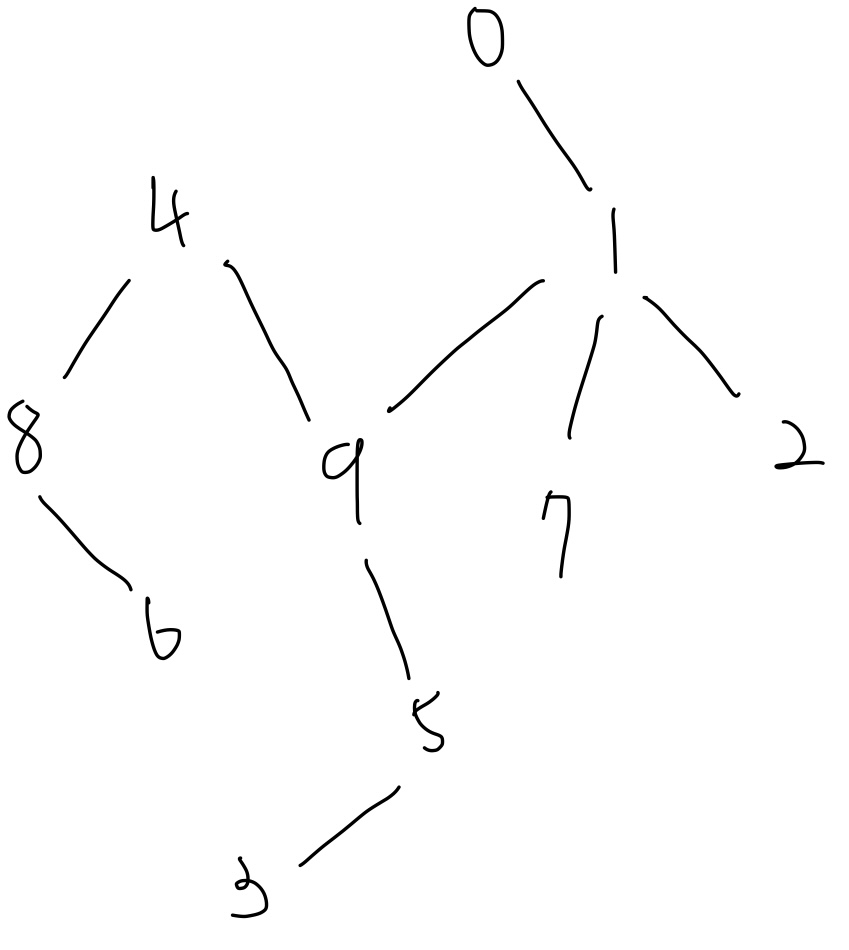 0
4
1
8
9
2
7
6
5
3